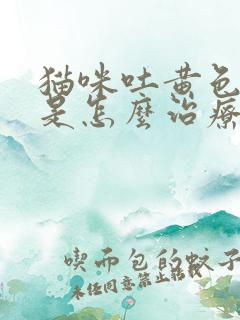 猫咪吐黄色
是怎麼治療
喫而包的蚊子
未经同意禁止转载